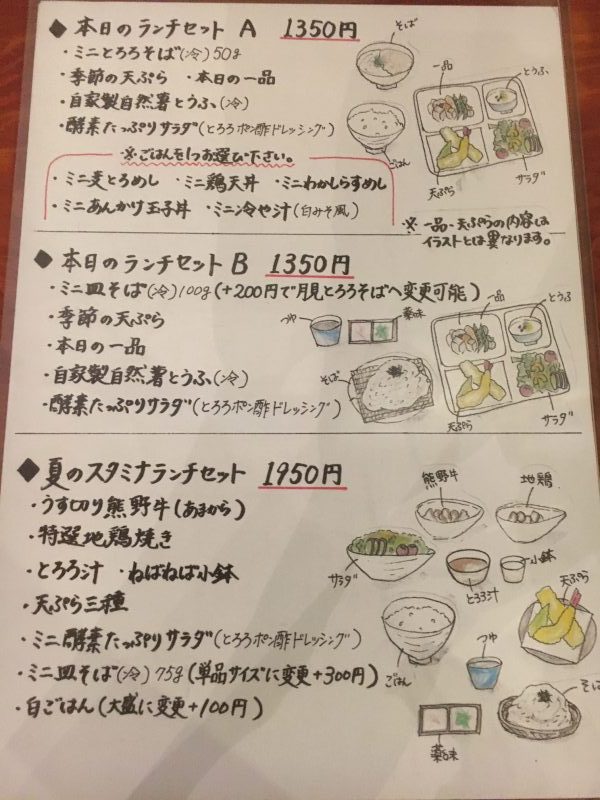 ◆本日のランチセット A 1350円
・ミニとろろそば(冷)50g
・季節の天ぷら ・本日の一品
・自家製自然薯とうふ(冷)
・酵素たっぷりサラダ(とろろポン酢ドレッシング)
※ごはんを1つお選び下さい。
・ミニ麦とろめし ・ミニ鶏天丼 ・ミニわかしらすめし
・ミニあんかけ玉子丼 ・ミニ冷や汁(白みそ風)
そば
一品
とうふ
ごはん
天ぷら
サラダ
※一品・天ぷらの内容は
イラストとは異なります。
◆本日のランチセット B 1350円
・ミニ皿そば(冷)100g(+200円で月見とろろそばへ変更可能)
・季節の天ぷら
・本日の一品
・自家製自然薯とうふ(冷)
・酵素たっぷりサラダ(とろろポン酢ドレッシング)
つゆ
薬味
一品
とうふ
そば
天ぷら
サラダ
◆夏のスタミナランチセット 1950円
・うす切り熊野牛(あまから)
・特選地鶏焼き
・とろろ汁 ・ねばねば小鉢
・天ぷら三種
・ミニ酵素たっぷりサラダ(とろろポン酢ドレッシング)
・ミニ皿そば(冷)75g(単品サイズに変更+300円)
・白ごはん(大盛に変更+100円)
熊野牛
地鶏
サラダ
とろろ汁
小鉢
天ぷら
ごはん
つゆ
そば
薬味